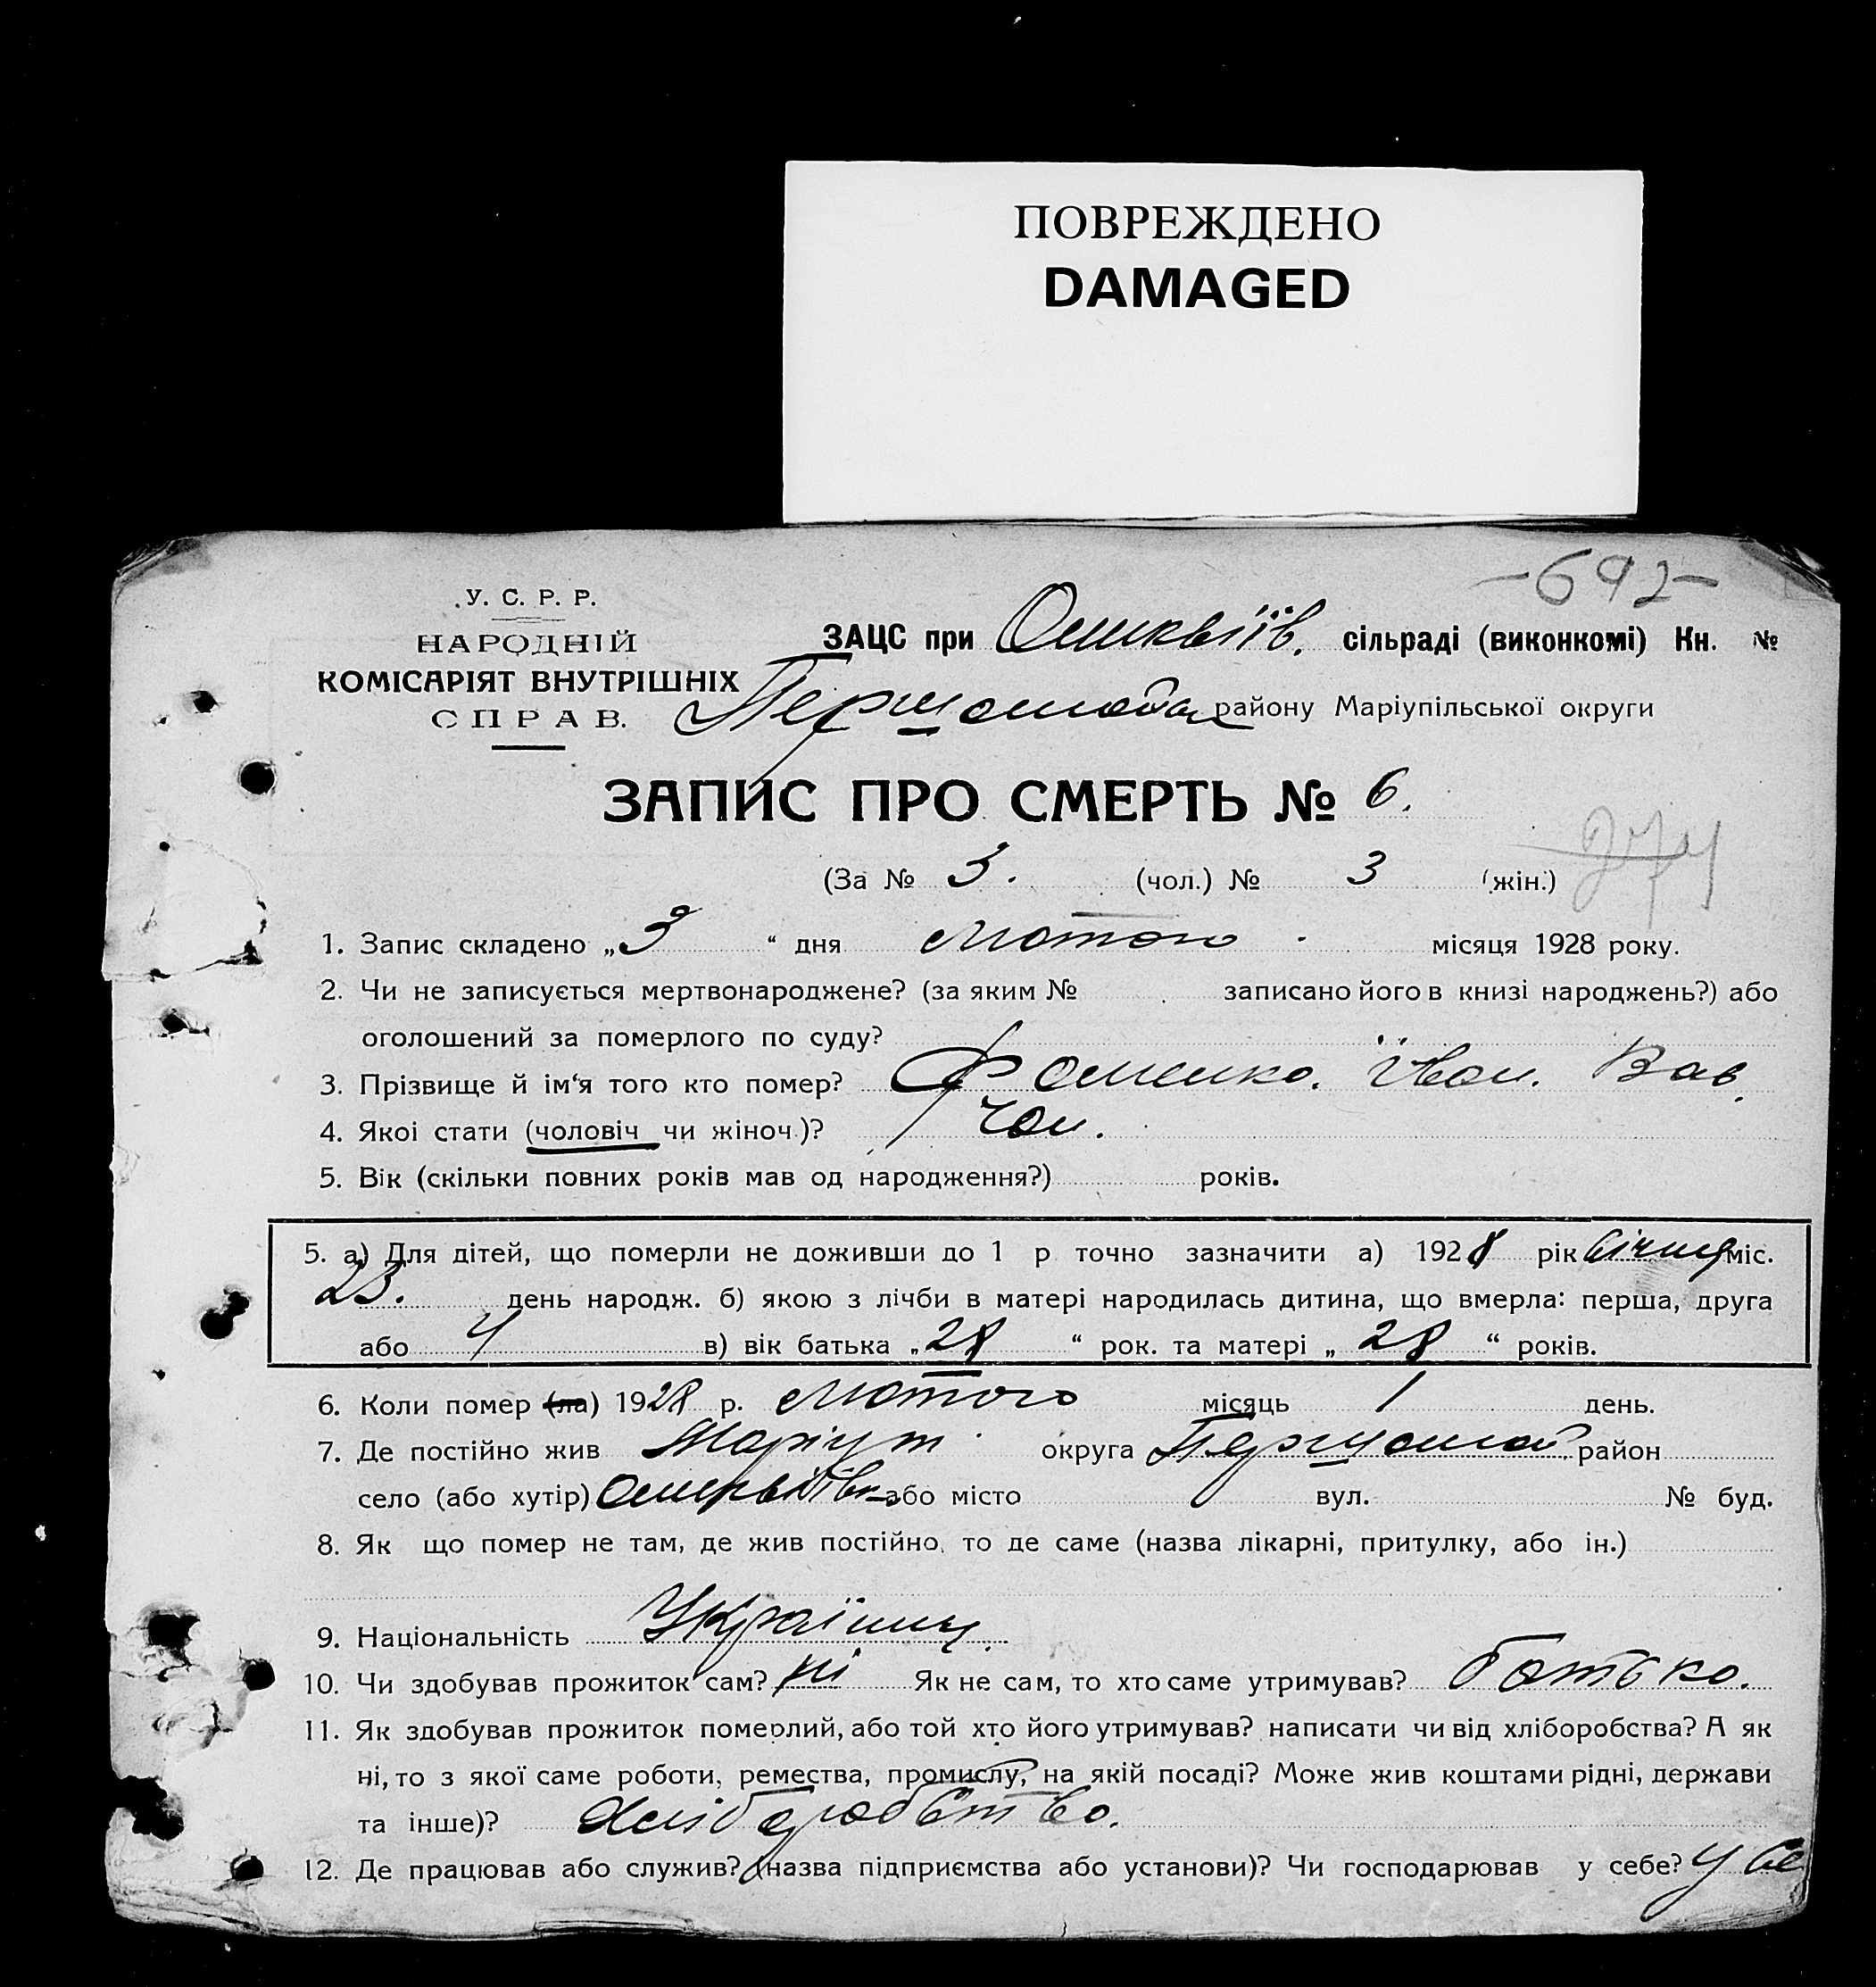 ПОВРЕЖДЕНО
DAMAGED
-692-
У. С. Р. Р.
НАРОДНІЙ
КОМІСАРІЯТ ВНУТРІШНІХ
СПРАВ.
ЗАЦС при сільраді (виконкомі) Кн. №
району Маріупільської округи
ЗАПИС ПРО СМЕРТЬ № 6.
274
(За № 3. (чол.) № 3 (жін.)
1. Запис складено „3“ дня лютого місяця 1928 року.
2. Чи не записується мертвонароджене? (за яким № записано його в книзі народжень?) або
оголошений за померлого по суду?
3. Прізвище й ім‘я того кто помер? Фоменко. Іван. Вас.
4. Якоі стати (чоловіч чи жіноч.)? Чол.
5. Вік (скільки повних років мав од народження?) років.
5. а) Для дітей, що померли не доживши до 1 р точно зазначити а) 1928 рік січня міс.
23. день народж. б) якою з лічби в матері народилась дитина, що вмерла: перша, друга
або 4 в) вік батька „28“ рок. та матері „28“ років.
6. Коли помер (ла) 1928 р. лютого місяць 1 день.
7. Де постійно жив Маріуп округа Першомай район
село (або хутір) або місто вул. № буд.
8. Як що помер не там, де жив постійно, то де саме (назва лікарні, притулку, або ін.)
9. Національність Українец.
10. Чи здобував прожиток сам? ні Як не сам, то хто саме утримував? батько.
11. Як здобував прожиток померлий, або той хто його утримував? написати чи від хліборобства? А як
ні, то з якої саме роботи, ремества, промислу, на якій посаді? Може жив коштами рідні, держави
та інше)? Хліборобство.
12. Де працював або служив? (назва підприємства або установи)? Чи господарював у себе? у се